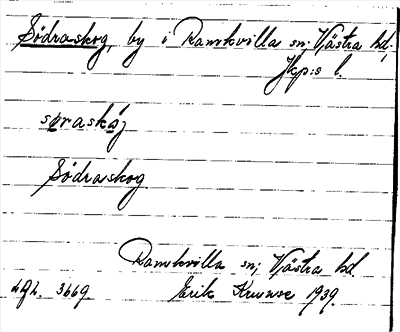 Södraskog, by i Ramkvilla sn; Västra hd,
Jkp:s l.
søraskåʒ
Södraskog
Ramkvilla sn; Västra hd
Erik Kruuse 1939.
agl. 3669